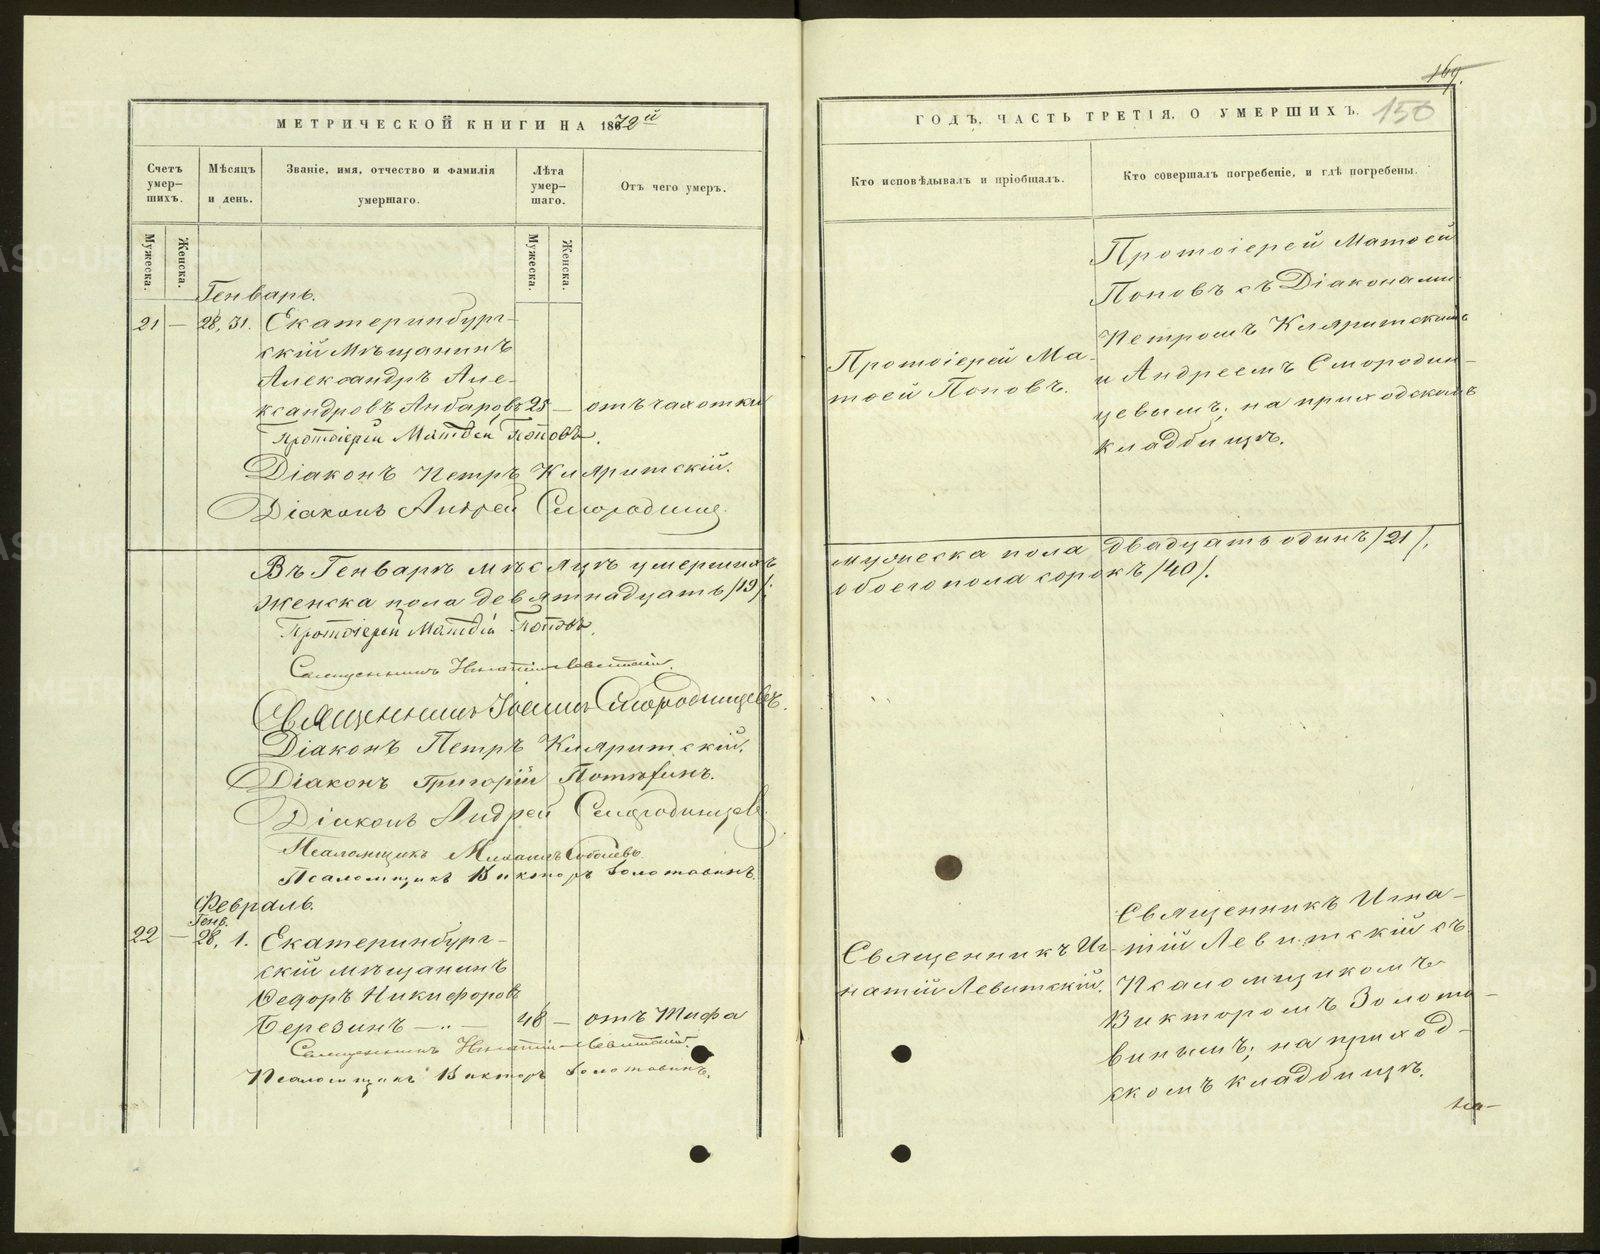 МЕТРИЧЕСКОЙ КНИГИ НА 1872й
Счетъ умер-шихъ.
Мѣсяцъ и день.
Званіе, имя, отчество и фамилія умершаго.
Лѣта умер-шаго.
Отъ чего умеръ.
Мужеска.
Женска.
Мужеска.
Женска.
Генварь.
21 — 28, 31. Екатеринбург-
скій Мѣщанинъ
Александръ Але-
ксандровъ Анбаровъ 25 — отъ чахотки
Протоіерей Матѳей Поповъ.
Діаконъ Петръ Кляритскій.
Діаконъ Андрей Смородинцевъ
Въ Генварѣ мѣсяцѣ умершихъ
женска пола девятнадцать /19/;
Протоіерей Матѳей Поповъ.
Священникъ Игнатій Левитскій.
Священникъ Іоаннъ Смородинцевъ.
Діаконъ Петръ Кляритскій.
Діаконъ Григорій Потѣхинъ.
Діаконъ Андрей Смородинцевъ
Псаломщикъ Михаилъ
Псаломщикъ Викторъ Золотавинъ.
Февраль.
Генв.
22 — 28, 1. Екатеринбург-
скій мѣщанинъ
Ѳедоръ Никифоровъ
Березинъ — „ — 48 — отъ Тифа
Священникъ Игнатій Левитскій.
Псаломщикъ Викторъ Золотавинъ.
169.
ГОДЪ, ЧАСТЬ ТРЕТІЯ, О УМЕРШИХЪ.
150
Кто исповѣдывалъ и пріобщалъ.
Кто совершалъ погребеніе, и гдѣ погребены.
Протоіерей Ма-
тѳей Поповъ.
Протоіерей Матѳей
Поповъ съ Діаконами
Петромъ Кляритскимъ
и Андреемъ Смородин-
цевымъ; на приходскомъ
кладбищѣ.
мужеска пола двадцать одинъ /21/,
обоего пола сорокъ /40/.
Священникъ Иг-
натій Левитскій.
Священникъ Игна-
тій Левитскій съ
Псаломщикомъ
Викторомъ Золота-
винымъ; на приход-
скомъ кладбищѣ.
METRIKI.GASO-URAL.RU